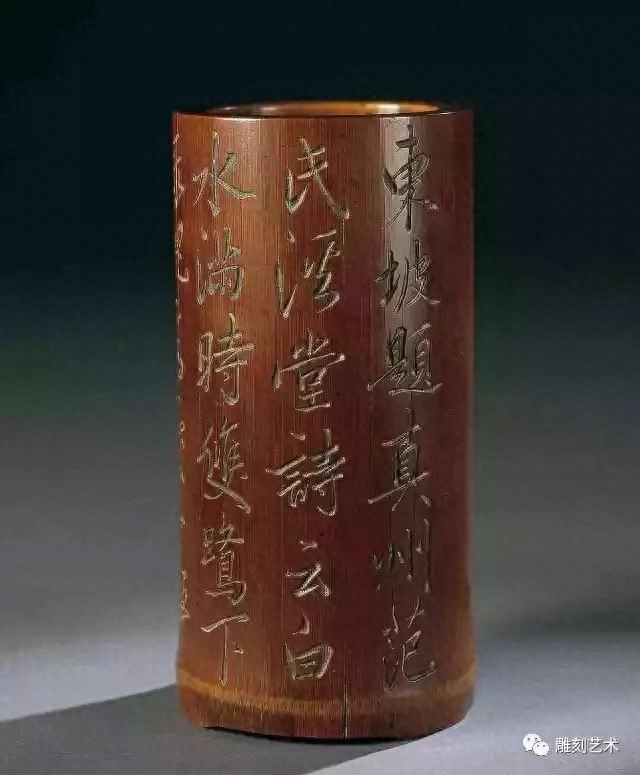 東坡題真州范
氏溪堂詩云白
水滿時雙鷺下
雕刻艺术